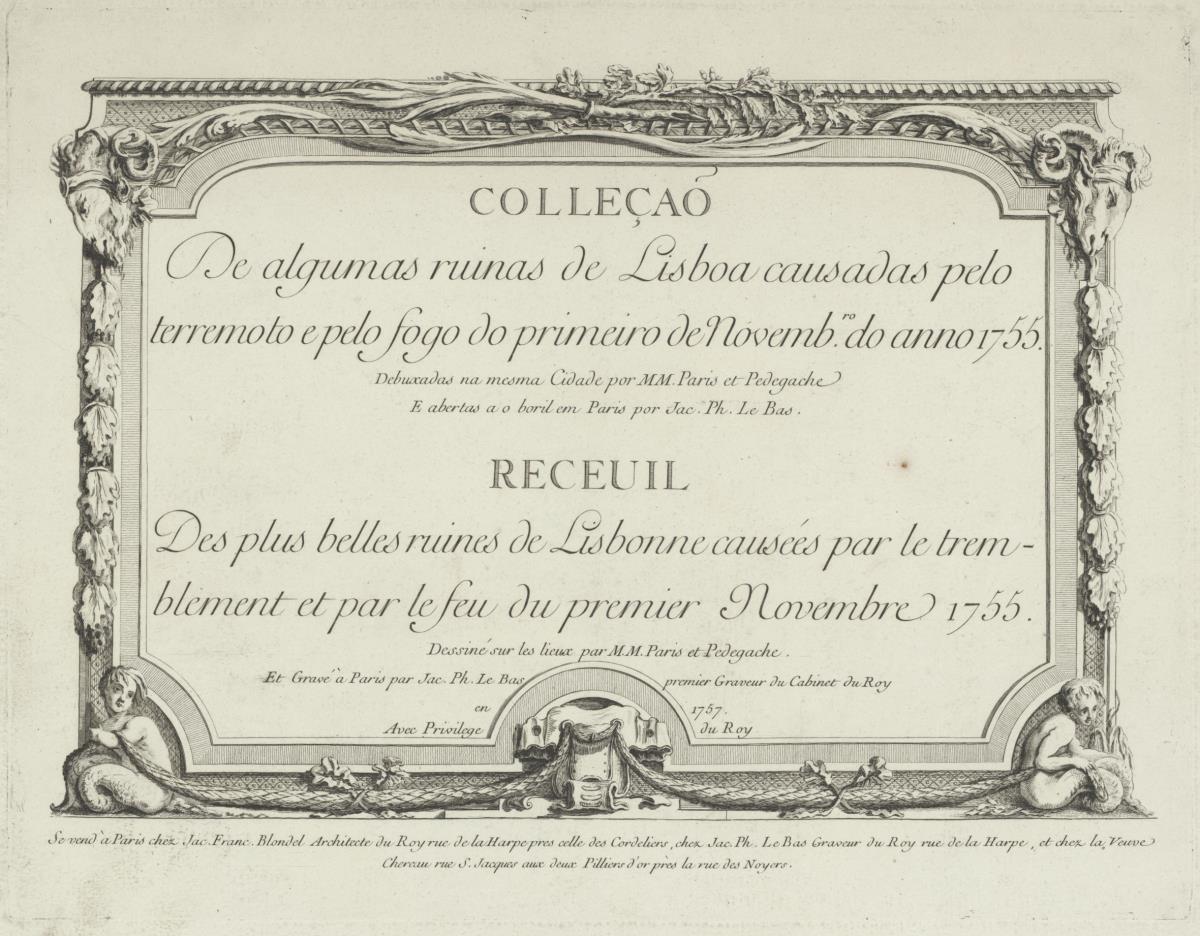 COLLEÇAÕ
De algumas ruinas de Lisboa causadas pelo
terremoto e pelo fogo do primeiro de Novemb.ro do anno 1755.
Debuxadas na mesma Cidade por MM. Paris et Pedegache
E abertas a o boril em Paris por Jac. Ph. Le Bas.
RECEUIL
Des plus belles ruines de Lisbonne causées par le trem-
blement et par le feu du premier Novembre 1755.
Dessiné sur les lieux par M.M. Paris et Pedegache.
Et Gravé à Paris par Jac. Ph. Le Bas premier Graveur du Cabinet du Roy
en 1757.
Avec Privilege du Roy
Se vend à Paris chez Jac. Franc. Blondel Architecte du Roy rue de la Harpe pres celle des Cordeliers, chez Jac. Ph. Le Bas Graveur du Roy rue de la Harpe, et chez la Veuve
Chereau rue S. Jacques aux deux Pilliers d'or près la rue des Noyers.